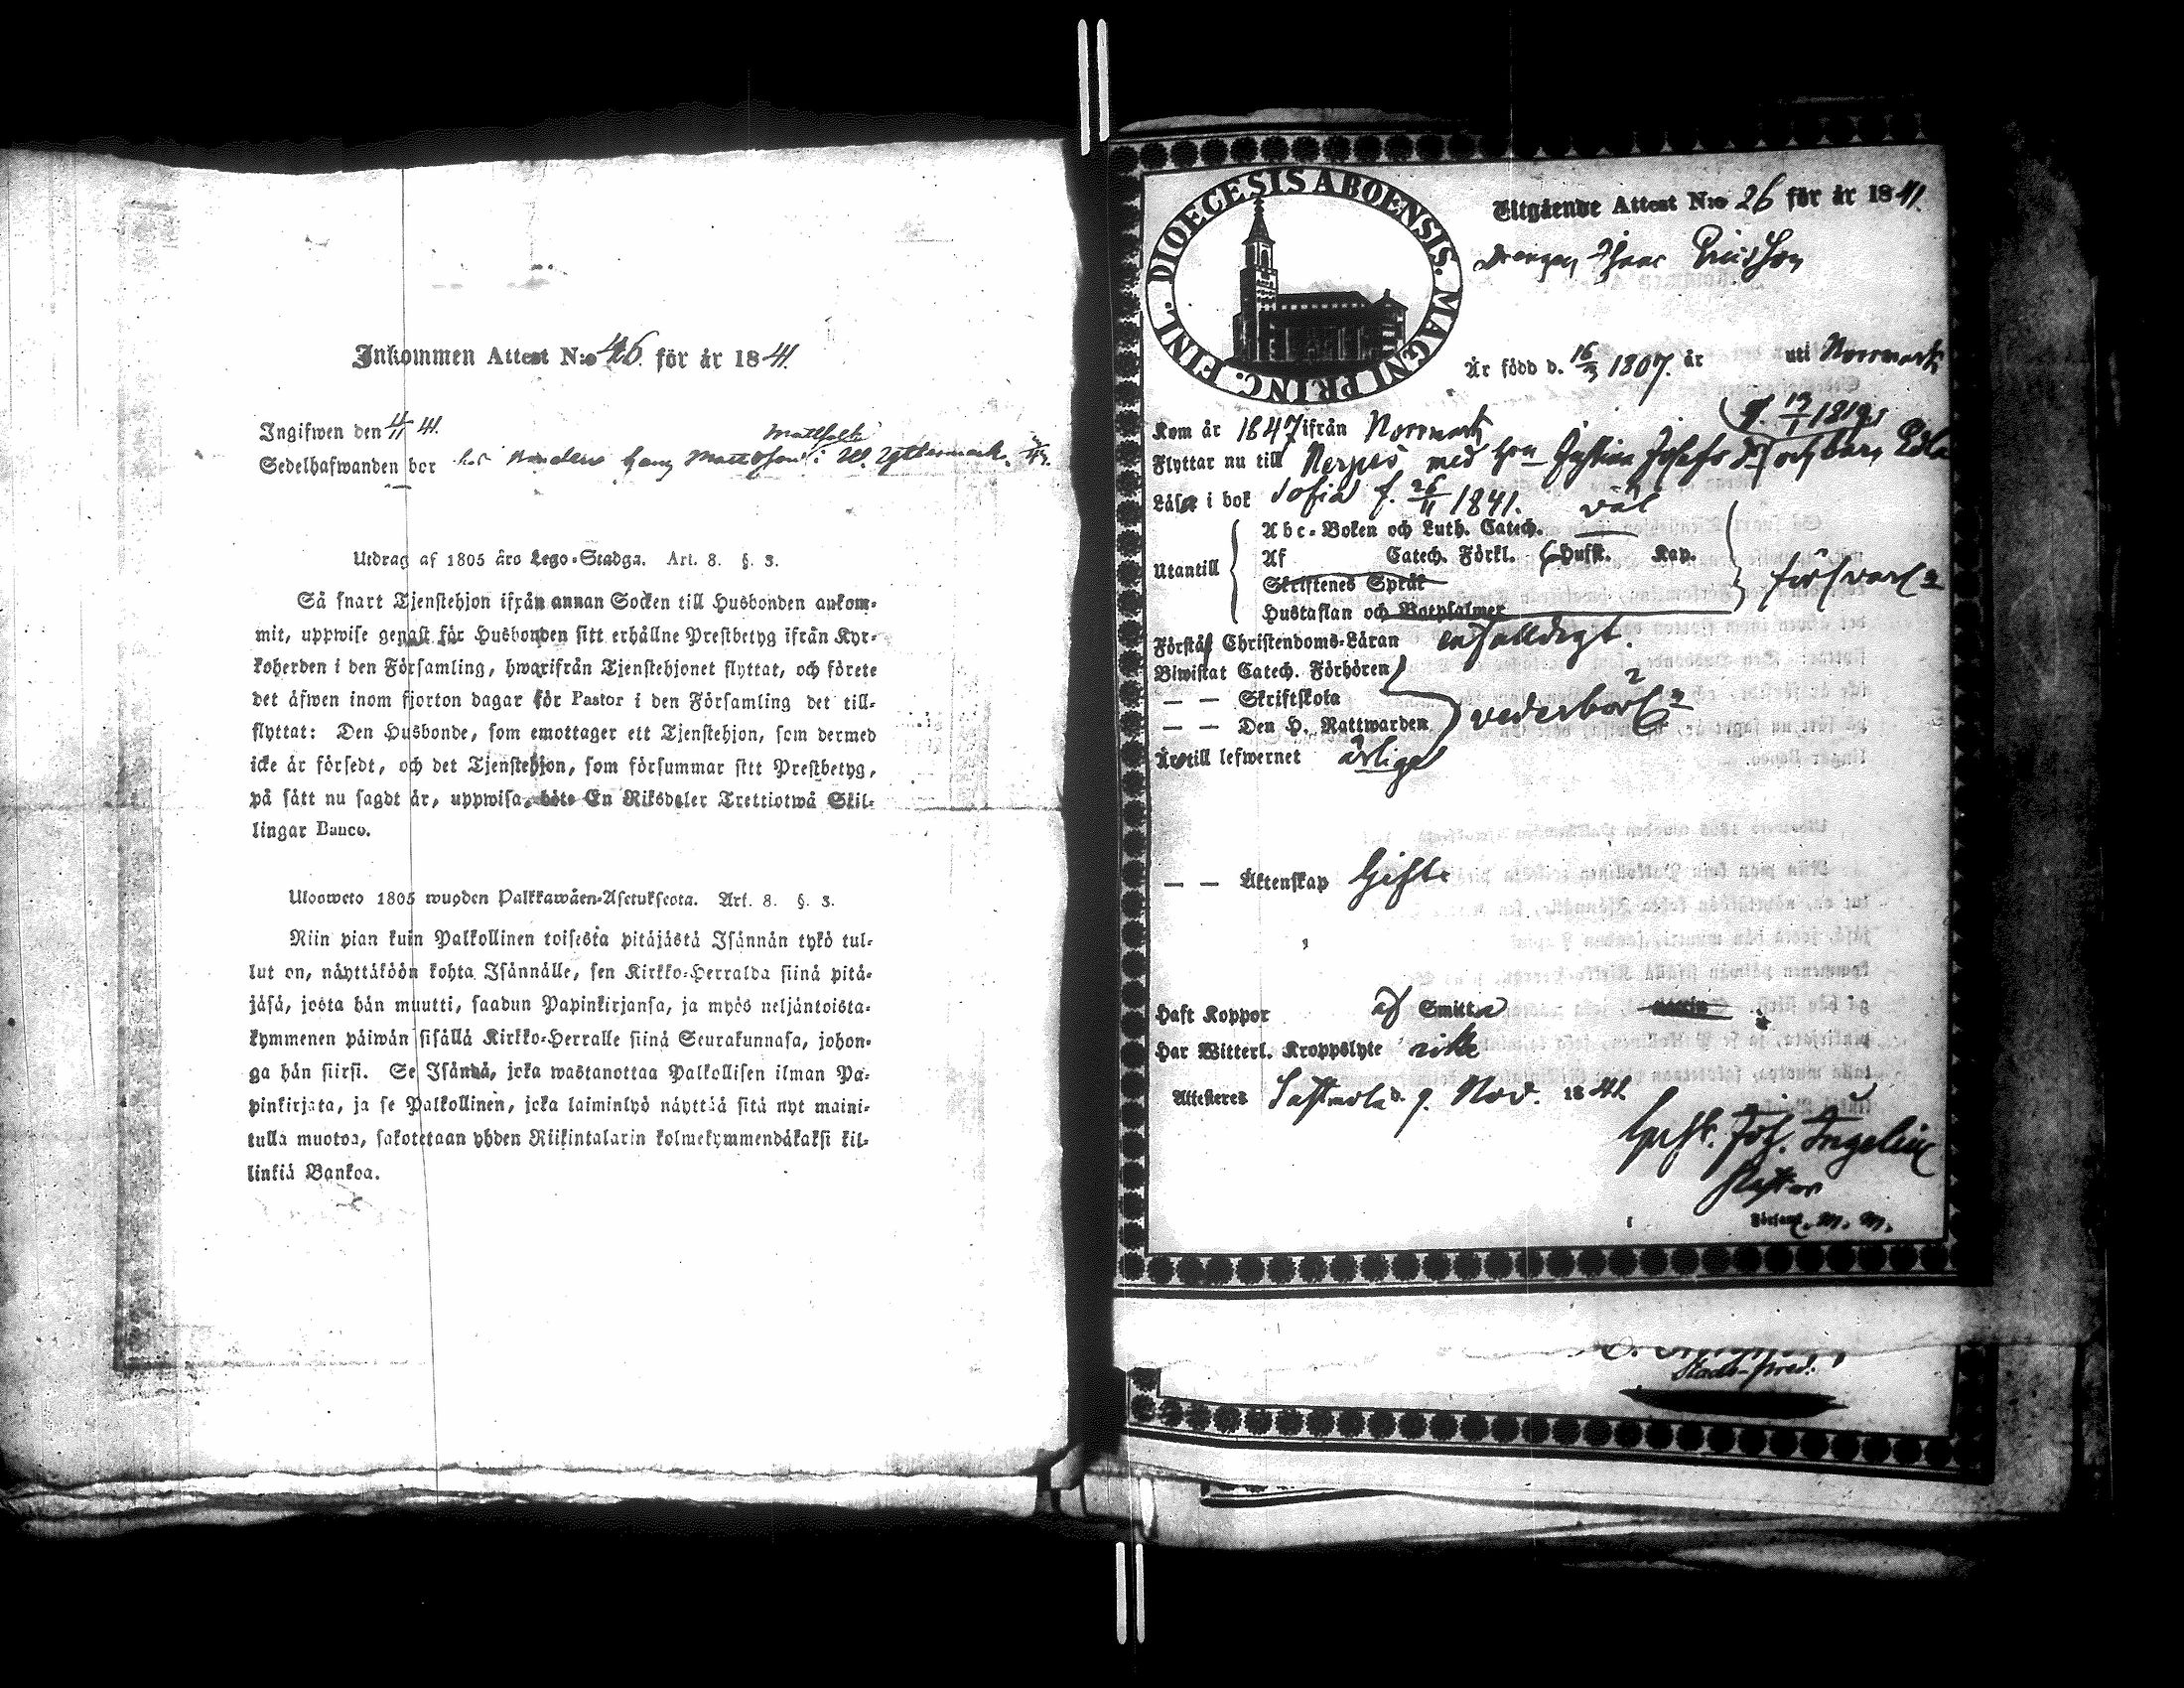 Inkommen Attest N:o 46. för år 1841.
Ingifwen den 41.
Mattfolk
Sedelhafwanden bor hos Hans Mattsson i W. Yttermark.
Utdrag af 1805 års Lego-Stadga. Art. 8. §. 3.
Så snart Tjenstehjon ifrån annan Socken till Husbonden ankom-
mit, uppwise genast för Husbonden sitt erhållne Prestbetyg ifrån Kyr-
koherden i den Församling, hwarifrån Tjenstehjonet flyttat, och förete
det äfwen inom fjorton dagar för Pastor i den Församling det till-
flyttat: Den Husbonde, som emottager ett Tjenstehjon, som dermed
icke är försedt, och det Tjenstehjon, som försummar sitt Prestbetyg,
på sätt nu sagdt är, uppwisa, böte En Riksdaler Trettiotwå Skil-
lingar Banco.
Ulosweto 1805 wuoden Palkkawäen-Asetuksesta. Art. 8. §. 3.
Niin pian kuin Palkollinen toisesta pitäjästä Isännän tykö tul-
lut on, näyttäköön kohta Isännälle, sen Kirkko-Herralda siinä pitä-
jäsä, josta hän muutti, saadun Papinkirjansa, ja myös neljäntoista-
kymmenen päiwän sisällä Kirkko-Herralle siinä Seurakunnasa, johon-
ga hän siirsi. Se Isändä, joka wastanottaa Palkollisen ilman Pa-
pinkirjata, ja se Palkollinen, joka laiminlyö näyttää sitä nyt maini-
tulla muotoa, sakotetaan yhden Riikintalarin kolmekymmendäkaksi kil-
linkiä Bankoa.
DIOECESIS ABOENSIS. MAGNI PRINC. FINL.
Utgående Attest N:o 26 för år 1841.
Drengen Isaac Ericsson
Är född d. 16/3 1807. år uti Norrmark
Kom år 1847 ifrån Norrmark
Flyttar nu till Nerpes med hon Justina Josefs dr och barn Edla
Läser i bok Sofia f. 26/11 1841. väl
Utantill
Abc-Boken och Luth. Catech.
Af Catech. Förkl. Husf. Kap.
Skriftenes Språk
Hustaflan och Botpsalmer
försvarl:a
Förstår Christendoms-Läran enfalldigt.
Biwistat Catech. Förhören
— — Skriftskola
— — Den H. Nattwarden
vederbörl:n
Är till lefwernet ärliga
— — Äktenskap Gifte
Haft Koppor af Smitta
Har Witterl. Kroppslyte icke
Attesteres Sastmola d. 9. Nov. 1841.
Joh. Ingelius
Pastor
Församl. m. m.
Stads-pred.